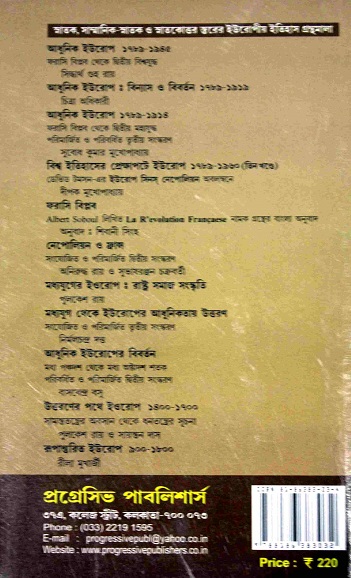 স্নাতক, সাম্মানিক-স্নাতক ও স্নাতকোত্তর স্তরের ইউরোপীয় ইতিহাস গ্রন্থমালা
আধুনিক ইউরোপ ১৭৮৯-১৯৪৫
ফরাসি বিপ্লব থেকে দ্বিতীয় বিশ্বযুদ্ধ
সিদ্ধার্থ গুহ রায়
আধুনিক ইউরোপ : বিন্যাস ও বিবর্তন ১৭৮৯-১৯১৯
চিত্রা অধিকারী
আধুনিক ইউরোপ ১৭৮৯-১৯১৪
ফরাসি বিপ্লব থেকে দ্বিতীয় মহাযুদ্ধ
পরিমার্জিত ও পরিবর্ধিত তৃতীয় সংস্করণ
সুবোধ কুমার মুখোপাধ্যায়
বিশ্ব ইতিহাসের প্রেক্ষাপটে ইউরোপ ১৭৮৯-১৯৬০ (তিন খণ্ডে)
ডেভিড টমসন-এর ইউরোপ সিনস্ নেপোলিয়ন অবলম্বনে
দীপক মুখোপাধ্যায়
ফরাসি বিপ্লব
Albert Soboul লিখিত La R'evolution Française নামক গ্রন্থের বাংলা অনুবাদ
অনুবাদ : শিবানী সিংহ
নেপোলিয়ন ও ফ্রান্স
সংযোজিত ও পরিমার্জিত দ্বিতীয় সংস্করণ
অনিরুদ্ধ রায় ও সুভাষরঞ্জন চক্রবর্তী
মধ্যযুগের ইওরোপ : রাষ্ট্র সমাজ সংস্কৃতি
পুলকেশ রায়
মধ্যযুগ থেকে ইউরোপের আধুনিকতায় উত্তরণ
সংযোজিত ও পরিমার্জিত তৃতীয় সংস্করণ
নির্মলচন্দ্র দত্ত
আধুনিক ইউরোপের বিবর্তন
মধ্য পঞ্চদশ থেকে মধ্য অষ্টাদশ শতক
পরিবর্ধিত ও পরিমার্জিত দ্বিতীয় সংস্করণ
বাসবেন্দ্র বসু
উত্তরণের পথে ইওরোপ ১৪০০-১৭০০
সামন্ততন্ত্রের অবসান থেকে ধনতন্ত্রের সূচনা
পুলকেশ রায় ও সায়ন্তন দাস
রূপান্তরিত ইউরোপ ৯০০-১৮০০
রীলা মুখার্জী
প্রগ্রেসিভ পাবলিশার্স
৩৭এ, কলেজ স্ট্রীট, কলকাতা-৭০০ ০৭৩
Phone : (033) 2219 1595
E-mail : progressivepubl@yahoo.co.in
Website : www.progressivepublishers.co.in
Price : ₹ 220